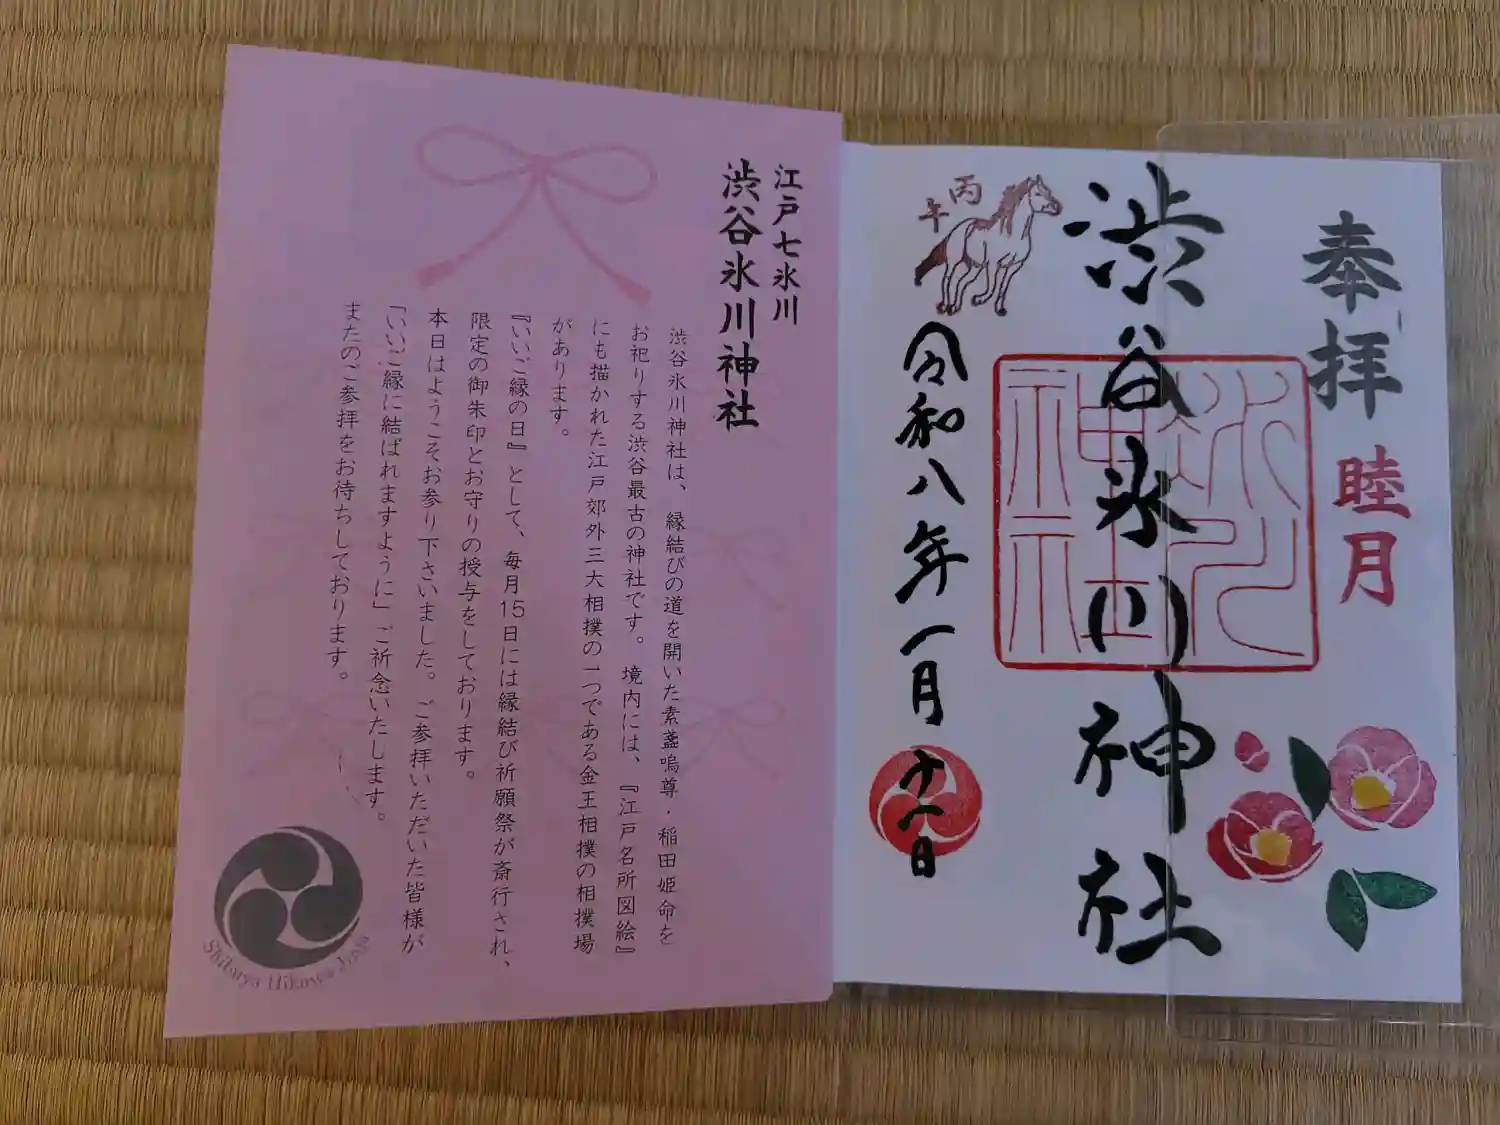 奉拝
睦月
渋谷氷川神社
氷川
神社
丙
午
令和八年一月
江戸七氷川
渋谷氷川神社
渋谷氷川神社は、縁結びの道を開いた素盞嗚尊・稲田姫命を
お祀りする渋谷最古の神社です。境内には、『江戸名所図絵』
にも描かれた江戸郊外三大相撲の一つである金王相撲の相撲場
があります。
『いいご縁の日』として、毎月15日には縁結び祈願祭が斎行され、
限定の御朱印とお守りの授与をしております。
本日はようこそお参り下さいました。ご参拝いただいた皆様が
「いいご縁に結ばれますように」ご祈念いたします。
またのご参拝をお待ちしております。
Shibuya Hikawa Jinja